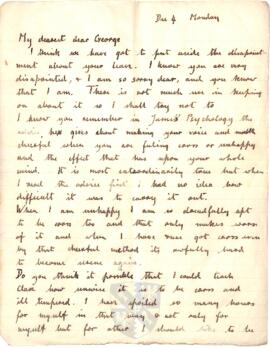 Dec 4 Monday
My dearest dear George
I think we have got to put aside the disapoint
ment about your leave. I know you are very
disapointed, & I am so sorry dear, and you know
that I am. There is not much use in keeping
on about it so I shall try not to
I know you remember in James' Psychology the
advice he gives about making your voice and mouth
cheerful when you are feeling cross or unhappy
and the effect that has upon your whole
mind. It is most extraordinarily true but when
I read the advice first I had no idea how
difficult it was to carry it out.
When I am unhappy I am so dreadfully apt
to be cross too and that only makes worse
of it and when I have once got cross even
by that cheerful method its awfully hard
to become serene again.
Do you think it possible that I could teach
Clare how unwise it is to be cross and
ill tempered. I have spoiled so many hours
for myself in that way & not only for
myself but for other I should like to be